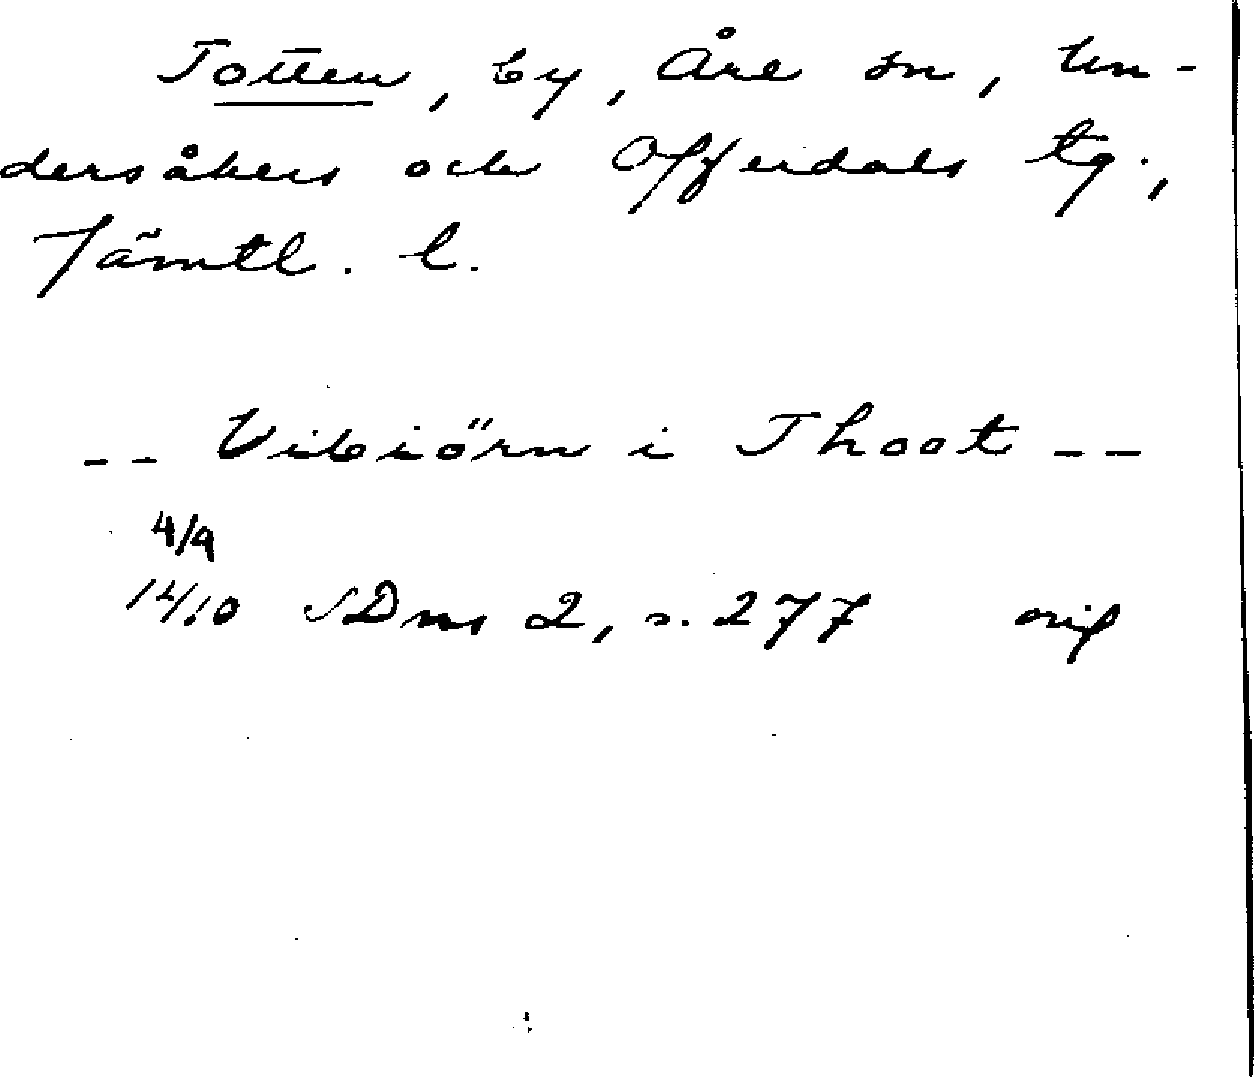 Totten, by, Åre sn, Un-
dersåkers och Offerdals tg.,
Jämtl. l.
-- Vibiörn i Thoot --
4/9
1410 SDns 2, s. 277 orig